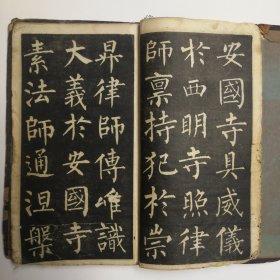 安國寺具威儀
於西明寺照律
師禀持犯於崇
昇律師傳唯識
大義於安國寺
素法師通涅槃